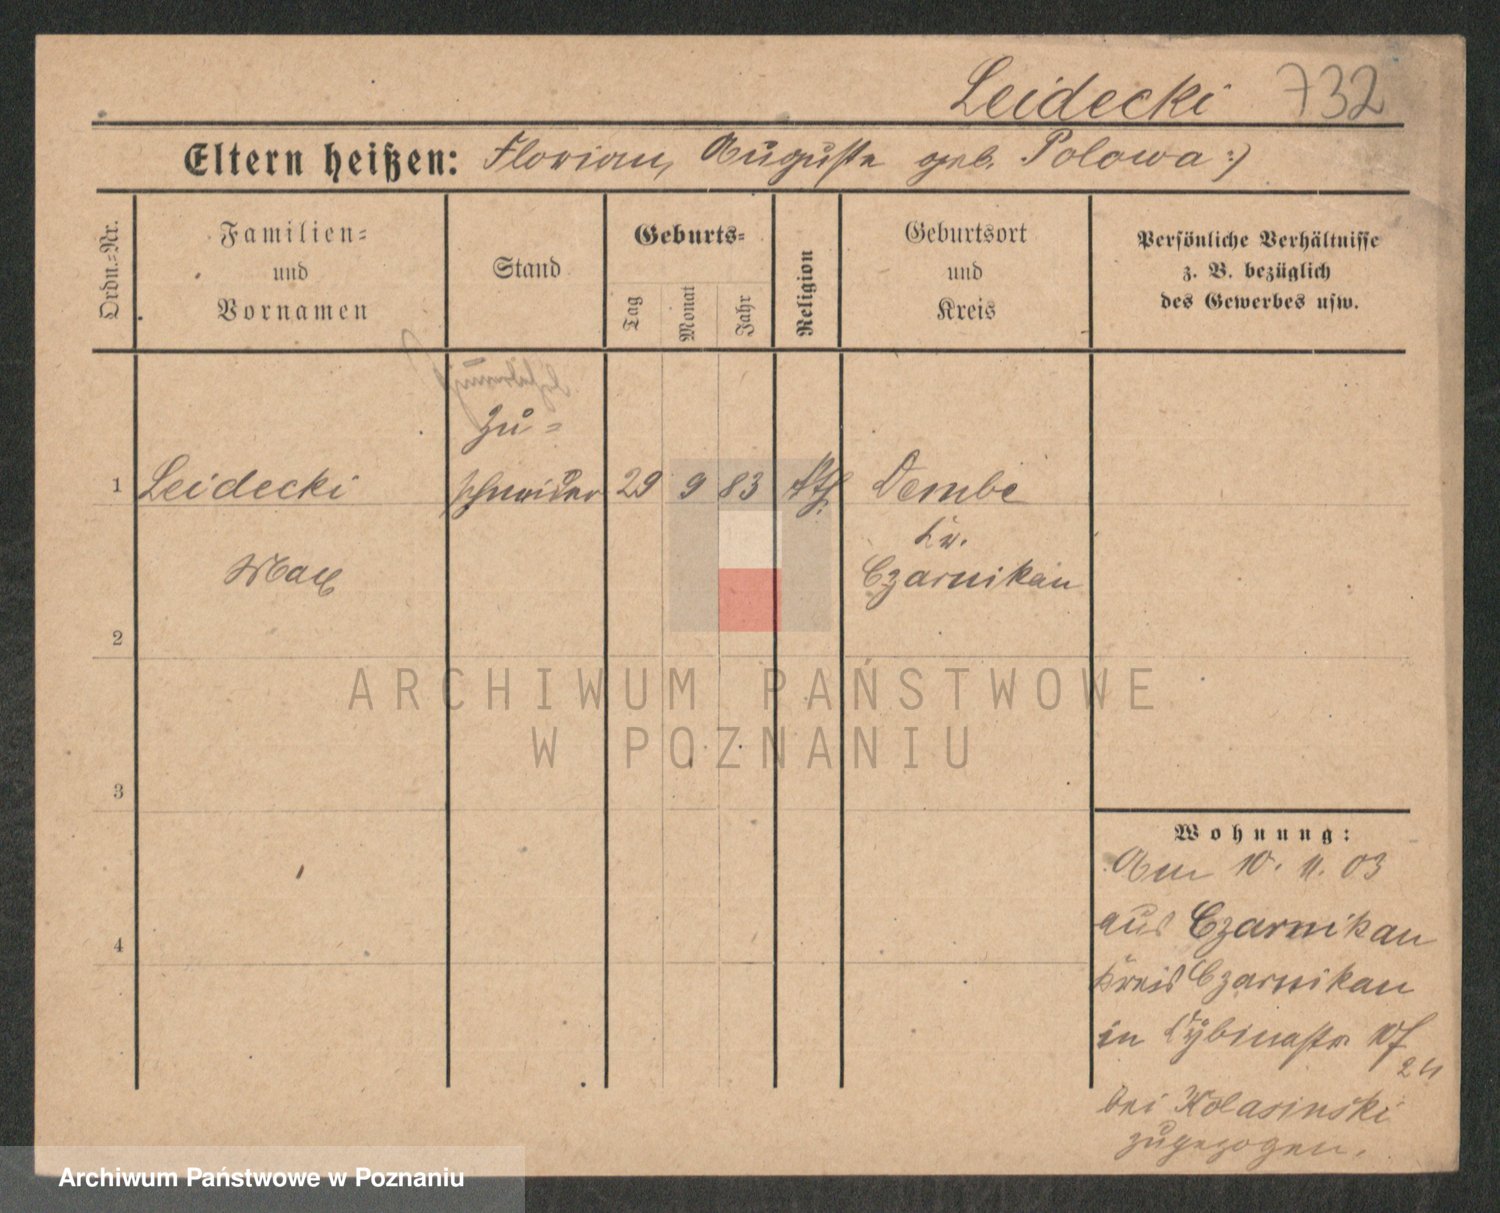 Leidecki 732
Eltern heißen: Florian, Auguste geb. Polowa :)
Ordn.=Nr.
Familien=
und
Vornamen
Stand
Geburts=
Tag
Monat
Jahr
Religion
Geburtsort
und
Kreis
Persönliche Verhältnisse
z. B. bezüglich
des Gewerbes usw.
Zu=
1 Leidecki schneider 29 9 83 kth. Dembe
Kr.
Max Czarnikau
2
3
4
Wohnung:
Am 10. 11. 03
aus Czarnikau
Kreis Czarnikau
in
bei Kolasinski
zugezogen.
ARCHIWUM PAŃSTWOWE
W POZNANIU
Archiwum Państwowe w Poznaniu